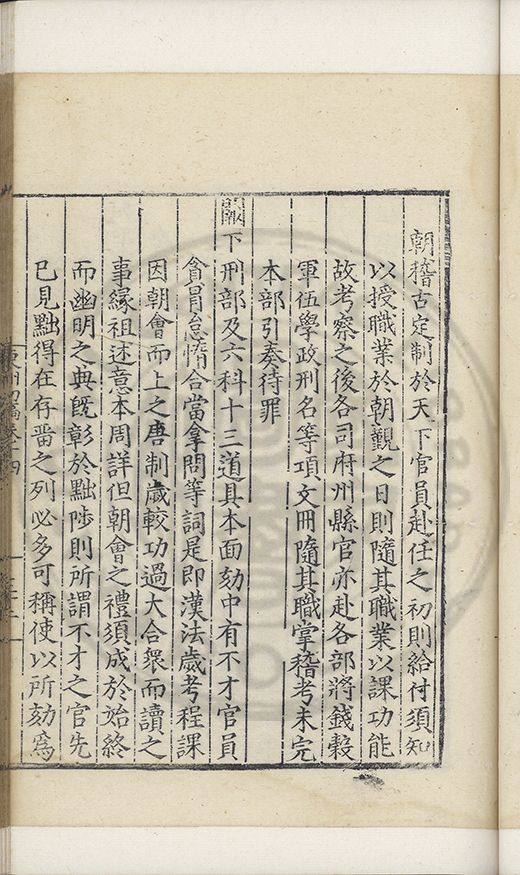 朝稽古定制於天下官員赴任之初則給付須知
以授職業於朝覲之日則隨其職業以課功能
故考察之後各司府州縣官亦赴各部將錢穀
軍伍學政刑名等項文冊隨其職掌稽考未完
本部引奏待罪
下刑部及六科十三道具本面劾中有不才官員
貪冐怠惰合當拿問等詞是即漢法歲考程課
因朝會而上之唐制歲較功過大合衆而讀之
事緣祖述意本周詳但朝會之禮須成於始終
而幽明之典旣彰於黜陟則所謂不才之官先
已見黜得在存畱之列必多可稱使以所劾爲